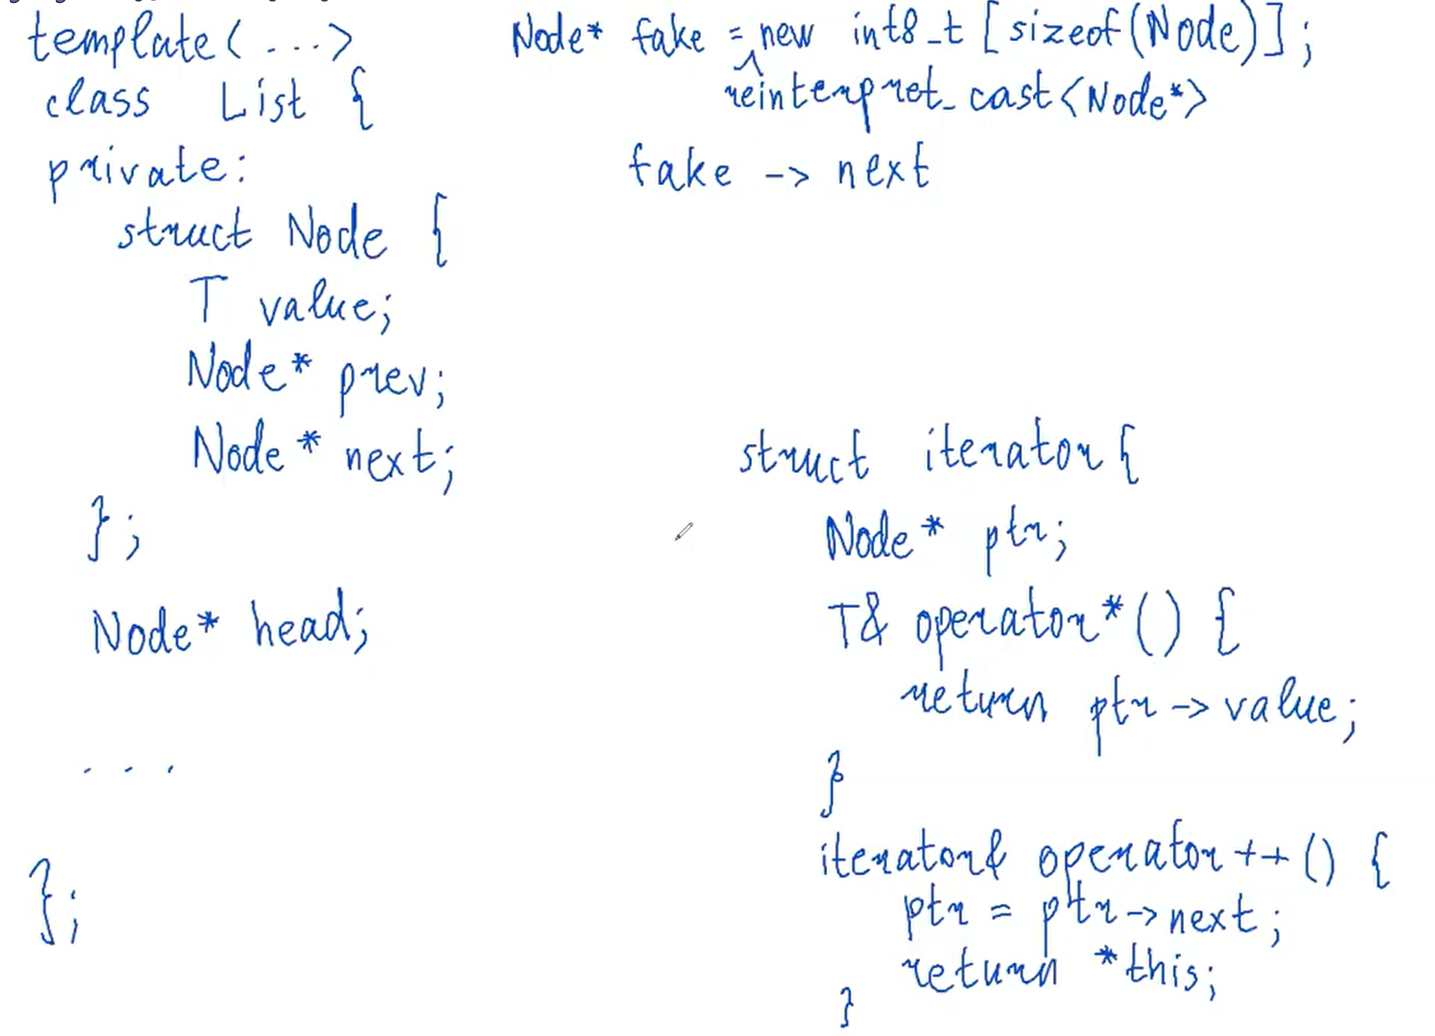 template< ... >
class List {
private:
struct Node {
T value;
Node* prev;
Node* next;
};
Node* head;
...
};
Node* fake = new int8_t [sizeof(Node)];
reinterpret_cast<Node*>
fake -> next
struct iterator {
Node* ptr;
T& operator*() {
return ptr -> value;
}
iterator& operator++() {
ptr = ptr -> next;
return *this;
}